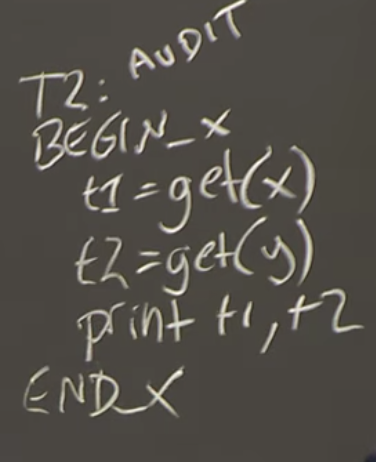 T2: AUDIT
BEGIN_X
t1=get(x)
t2=get(y)
print t1, t2
END_X